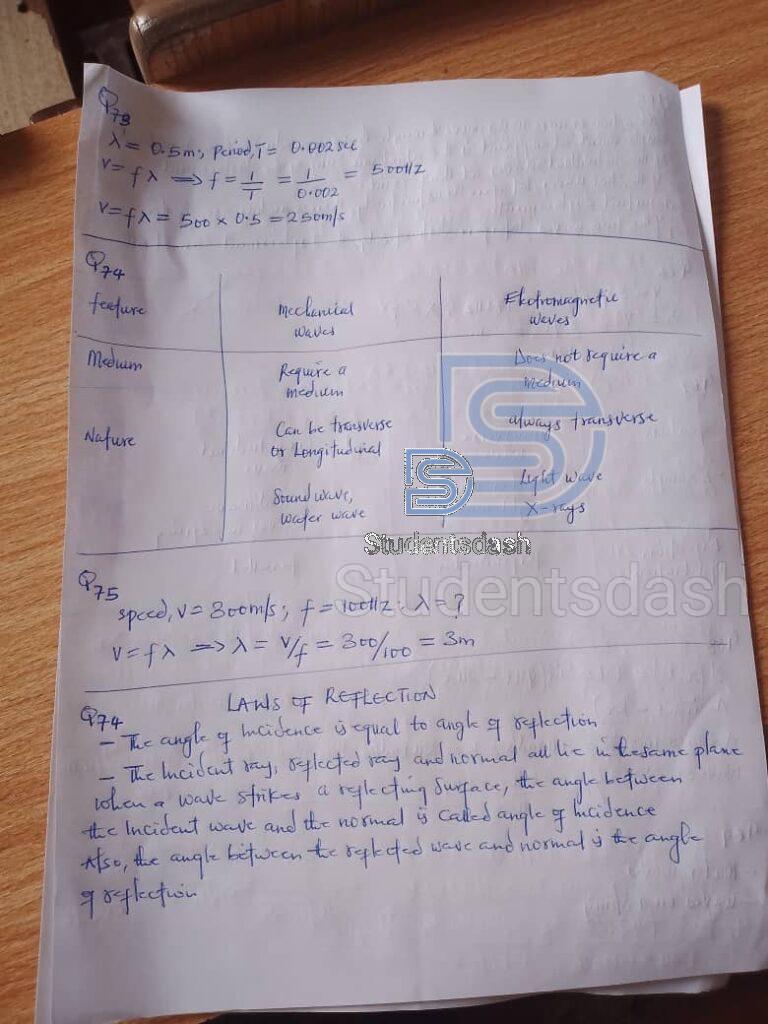 Q73
λ = 0.5m; Period, T = 0.002 sec
V = fλ ⟹ f = 1/T = 1/0.002 = 500Hz
V = fλ = 500 × 0.5 = 250m/s
Q74
feature Mechanical waves Electromagnetic waves
Medium Require a medium Does not require a medium
Nature Can be transverse or Longitudinal always transverse
Sound wave, water wave Light wave X-rays
Studentsdash
Studentsdash
Q75
speed, V = 300m/s; f = 100Hz; λ = ?
V = fλ ⟹ λ = V/f = 300/100 = 3m
Q74 LAWS OF REFLECTION
– The angle of Incidence is equal to angle of reflection
– The Incident ray, reflected ray and normal all lie in the same plane
when a wave strikes a reflecting surface, the angle between
the Incident wave and the normal is called angle of Incidence
Also, the angle between the reflected wave and normal is the angle
of reflection